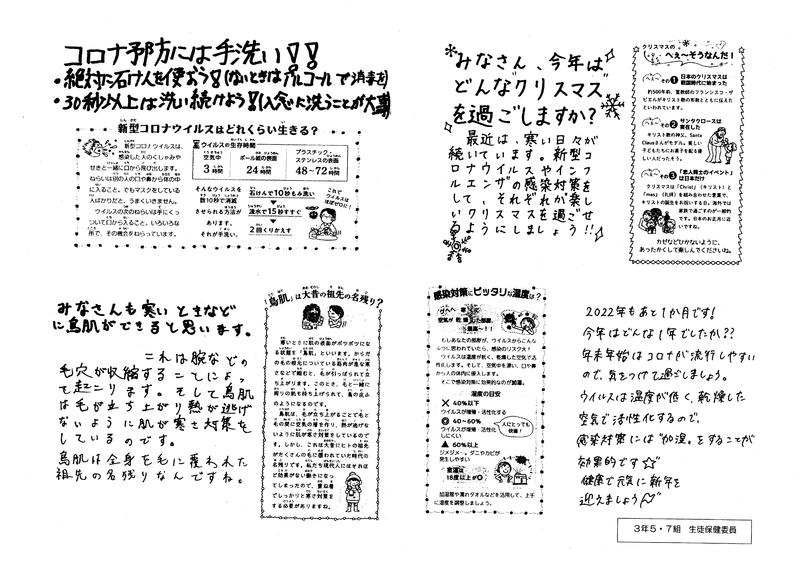 コロナ予防には手洗い!!
・絶対に石けんを使おう!(ないときはアルコールで消毒を)
・30秒以上は洗い続けよう!(入念に洗うことが大事)
新型コロナウイルスはどれくらい生きる?
新型コロナウイルスは、
感染した人のくしゃみや
せきと一緒に口から飛び出します。
ねらいは別の人の口や鼻から体の中
に入ること。でもマスクをしている
人ばかりだと、うまくいきません。
ウイルスの次のねらいは手にくっ
ついて口から入ること。いろいろな
所で、その機会をねらっています。
ウイルスの生存時間
空気中
3時間
ボール紙の表面
24時間
プラスチック・
ステンレスの表面
48~72時間
そんなウイルスを
数10秒で消滅
させられる方法が
あります。
それが手洗い。
石けんで10秒もみ洗い
流水で15秒すすぐ
2回くりかえす
これで
ウイルスは
ほぼゼロに!
みなさん、今年は
どんなクリスマス
を過ごしますか?
最近は、寒い日々が
続いています。新型コ
ロナウイルスやインフ
ルエンザの感染対策を
して、それぞれが楽し
いクリスマスを過ごせ
るようにしましょう!!
クリスマスの
へぇ~そうなんだ!
その1 日本のクリスマスは
戦国時代に始まった
約500年前、宣教師のフランシスコ・ザ
ビエルがキリスト教の布教とともに伝えた
といわれています。
その2 サンタクロースは
実在した
キリスト教の神父、Saint
Clausさんがモデル。貧しい
子どもたちにお菓子を配る優
しい人だったそう。
その3 「恋人同士のイベント」
は日本だけ
クリスマスは「Christ」(キリスト)と
「mas」(礼拝)を組み合せた言葉で、
キリストの誕生をお祝いする日。海外では
家族で過ごすのが一般的
です。日本のお正月に近
いですね。
カゼなどひかないように、
あったかくして楽しんでくださいね。
みなさんも寒いときなど
に鳥肌ができると思います。
これは腕などの
毛穴が収縮することによっ
て起こります。そして鳥肌
は毛が立ち上がり熱が逃げ
ないように肌が寒さ対策を
しているのです。
鳥肌は全身を毛に覆われた
祖先の名残りなんですね。
「鳥肌」は大昔の祖先の名残り?
寒いときに肌の表面がポツポツにな
る状態を「鳥肌」といいます。からだ
の毛の根元についている筋肉が急な寒
さなどで縮むと、毛が引っぱられて立
ち上がります。このとき、毛と一緒に
周りの肌も持ち上げられて、鳥の皮ふ
のようになるのです。
鳥肌は、毛が立ち上がることで毛と
毛の間に空気の層を作り、熱が逃げな
いように肌が寒さ対策をしているので
す。しかし、これは大昔にヒトの祖先
がたくさんの毛に覆われていた時代の
名残りです。私たち現代人にはそれほ
ど効果がない動きになっ
てしまったので、重ね着
でしっかりと寒さ対策を
する必要がありますね。
感染対策にピッタリな温度は?
空気が乾燥した部屋、
最高~!!
もしあなたの部屋が、ウイルスからこんな
ふうに思われていたら、感染のリスク大!
ウイルスは温度が低く、乾燥した空気で活
性化します。そして、空気中を漂い、口や鼻
から人の体内に侵入します。
そこで感染対策に効果的なのが加湿。
湿度の目安
✕ 40%以下
ウイルスが増殖・活性化する
◎ 40~60%
ウイルスが増殖・活性化
しにくい
人にとっても
快適!
▲ 60%以上
ジメジメ…。ダニやカビが
発生しやすい
室温は
18度以上が◎
加湿器や濡れタオルなどを活用して、上手
に湿度を調整しましょう。
2022年もあと1か月です!
今年はどんな1年でしたか??
年末年始はコロナが流行しやすい
ので、気をつけて過ごしましょう。
ウイルスは温度が低く、乾燥した
空気で活性化するので、
感染対策には"加湿"をすることが
効果的です☆
健康で元気に新年を
迎えましょう
3年5・7組 生徒保健委員